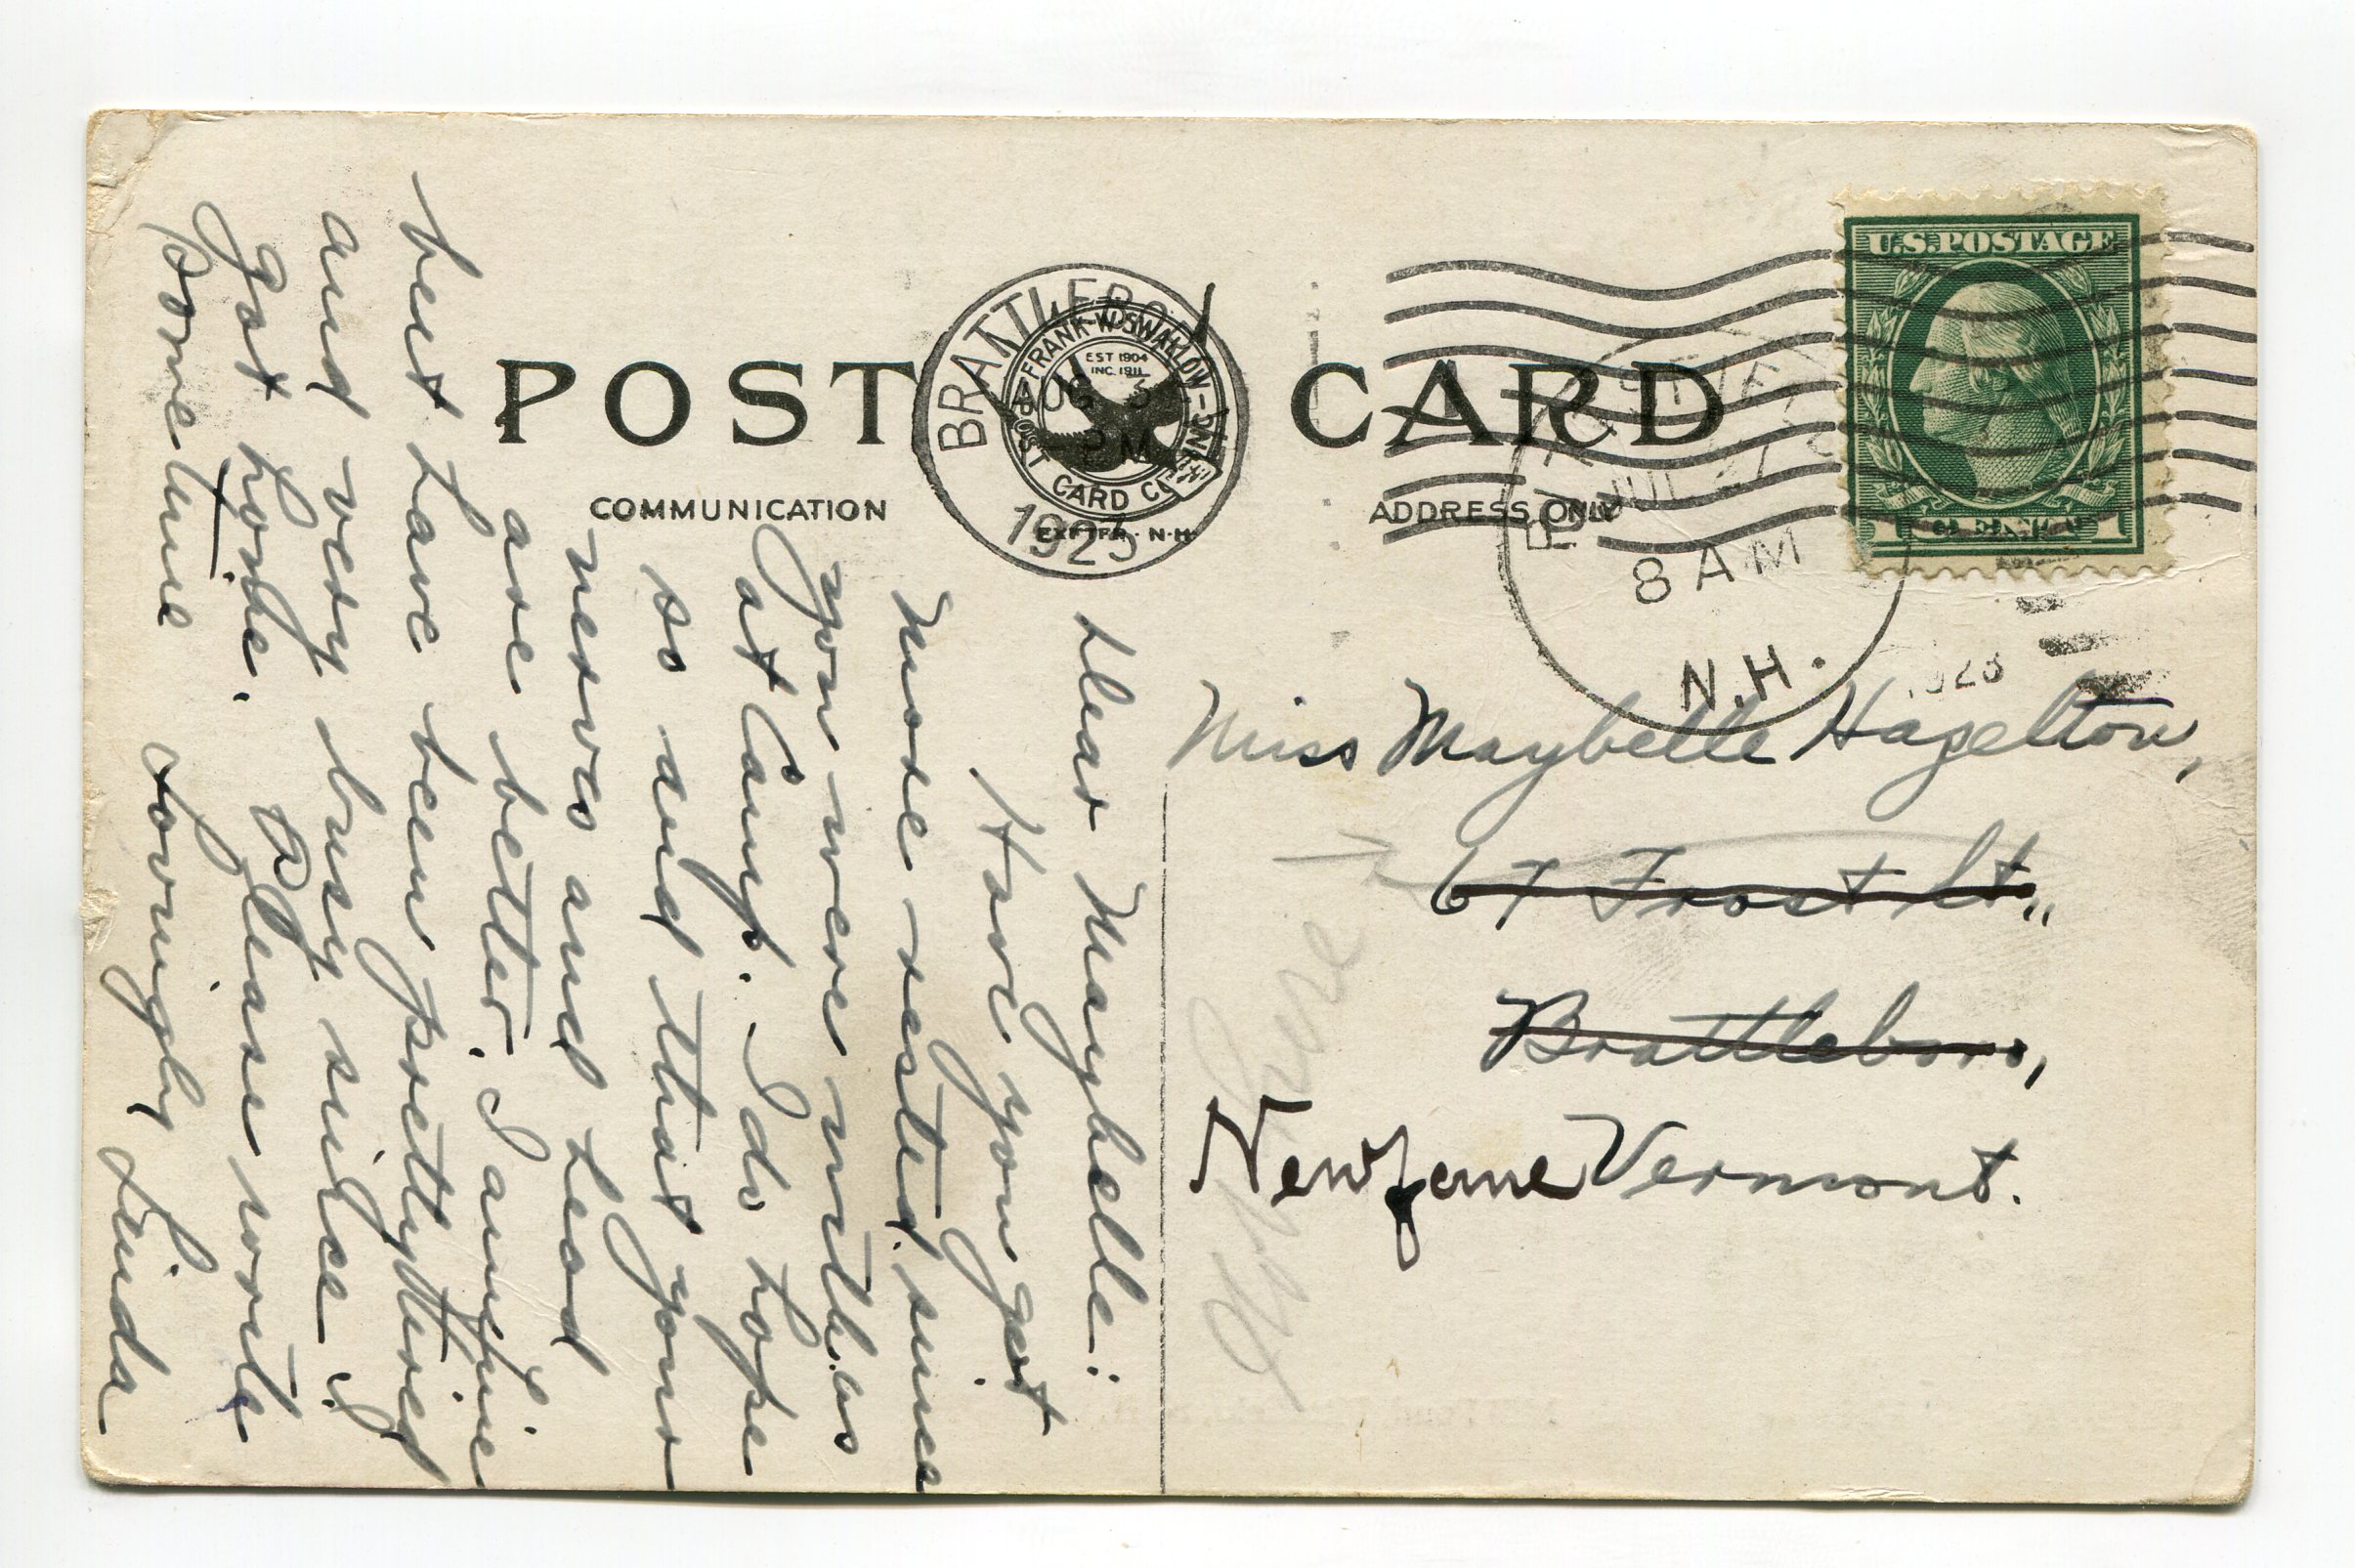 POST CARD
COMMUNICATION
ADDRESS ONLY
BRATTLEBORO
AUG 3
PM
1923
FRANK W. SWALLOW
POST CARD CO. INC.
EST 1904
INC. 1911
EXETER. N.H.
U.S. POSTAGE
1 CENT 1
JUL 27
8 AM
N.H.
1923
Dear Maybelle:
Have you got
more rested since
you were with us
at Camp. I do hope
so and that your
nerves and head
are better. I am fine
but have been pretty tired
and very busy since I
got home. Please write
sometime
Lovingly Linda
Miss Maybelle Hazelton,
67 Frost St.,
Brattleboro,
Newfane Vermont.
here